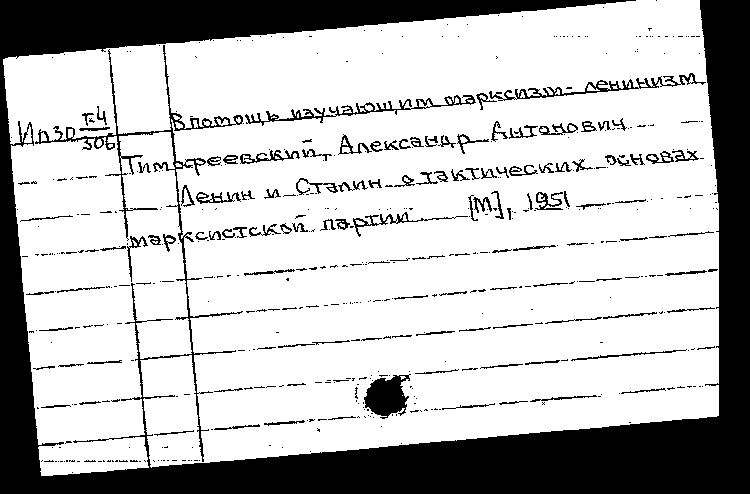 Ип30 Г-4/306 В помощь изучающим марксизм-ленинизм.
Тимофеевский, Александр Антонович
Ленин и Сталин о тактических основах
марксистской партии [М.], 1951